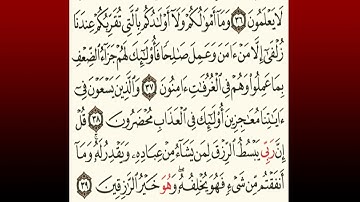 لَا يَعْلَمُونَ ٣٦ وَمَا أَمْوَٰلُكُمْ وَلَا أَوْلَٰدُكُم بِالَّتِي تُقَرِّبُكُمْ عِندَنَا
زُلْفَىٰ إِلَّا مَنْ ءَامَنَ وَعَمِلَ صَٰلِحًا فَأُو۟لَٰٓئِكَ لَهُمْ جَزَآءُ الضِّعْفِ
بِمَا عَمِلُوا۟ وَهُمْ فِي الْغُرُفَٰتِ ءَامِنُونَ ٣٧ وَالَّذِينَ يَسْعَوْنَ فِي
ءَايَٰتِنَا مُعَٰجِزِينَ أُو۟لَٰٓئِكَ فِي الْعَذَابِ مُحْضَرُونَ ٣٨ قُلْ
إِنَّ رَبِّي يَبْسُطُ الرِّزْقَ لِمَن يَشَآءُ مِنْ عِبَادِهِۦ وَيَقْدِرُ لَهُۥ وَمَآ
أَنفَقْتُم مِّن شَيْءٍ فَهُوَ يُخْلِفُهُۥ وَهُوَ خَيْرُ الرَّٰزِقِينَ ٣٩